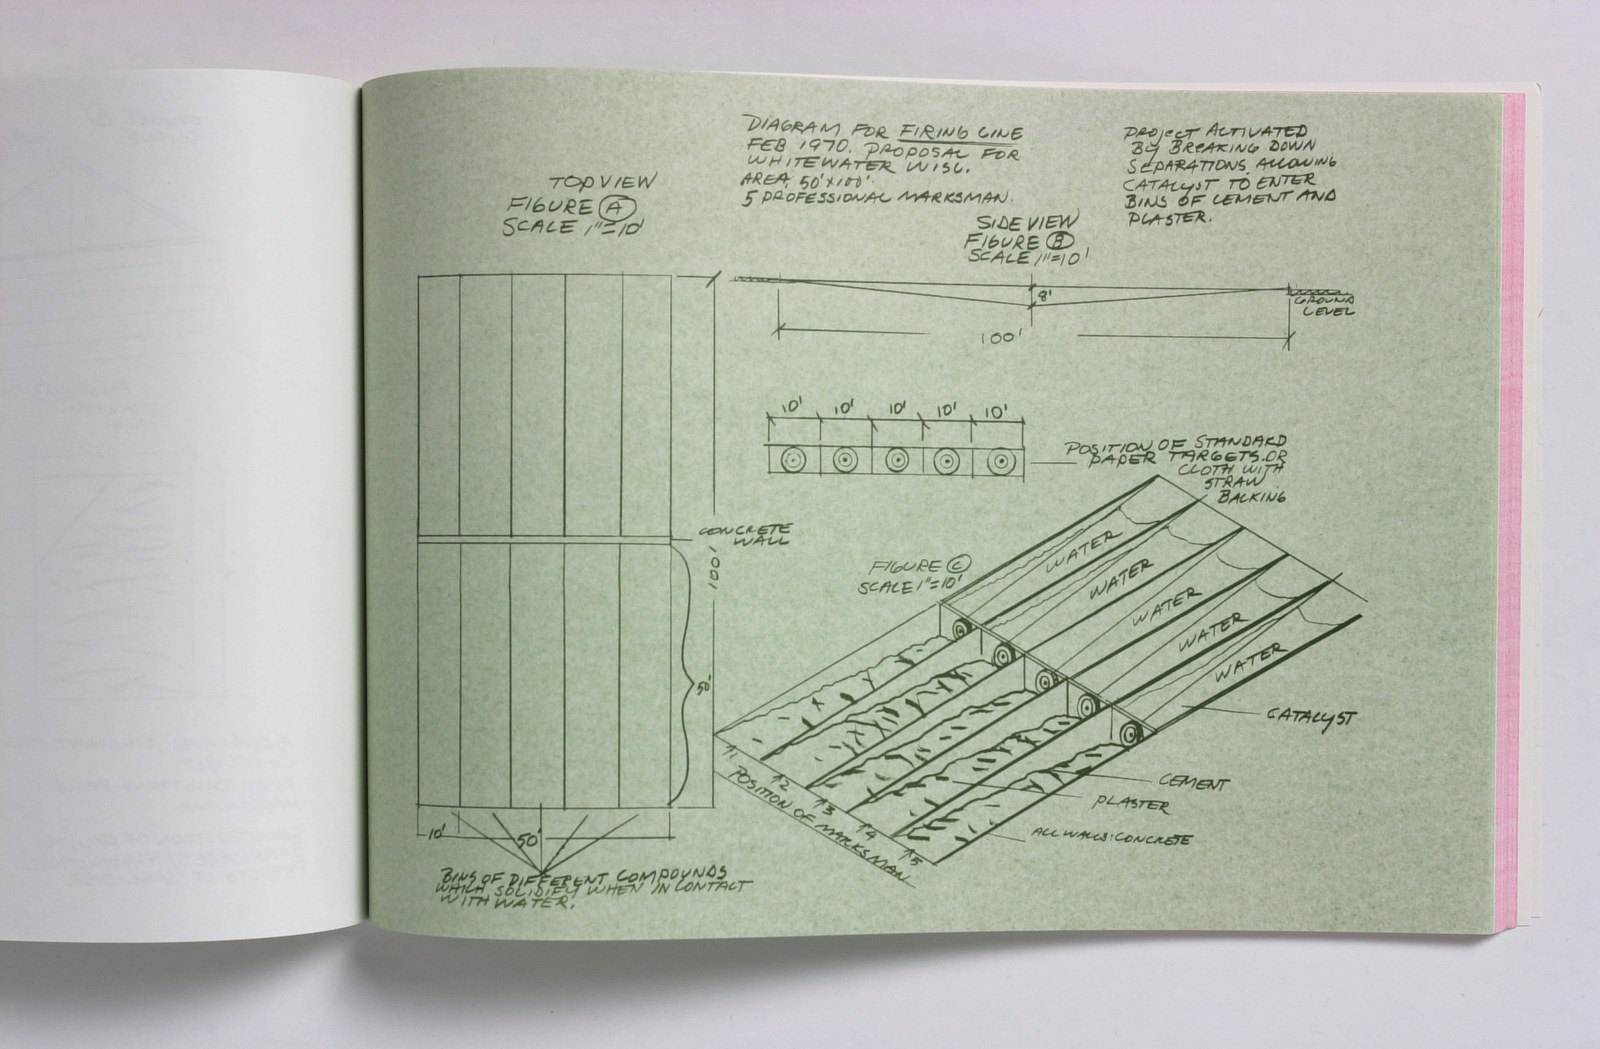 DIAGRAM FOR FIRING LINE
FEB 1970. PROPOSAL FOR
WHITEWATER WISC.
AREA, 50'X100'.
5 PROFESSIONAL MARKSMAN.
PROJECT ACTIVATED
BY BREAKING DOWN
SEPARATIONS, ALLOWING
CATALYST TO ENTER
BINS OF CEMENT AND
PLASTER.
TOP VIEW
FIGURE A
SCALE 1"=10'
SIDE VIEW
FIGURE B
SCALE 1"=10'
8'
GROUND
LEVEL
100'
10' 10' 10' 10' 10'
POSITION OF STANDARD
PAPER TARGETS.OR
CLOTH WITH
STRAW
BACKING
CONCRETE
WALL
100'
50'
10'
50'
BINS OF DIFFERENT COMPOUNDS
WHICH SOLIDIFY WHEN IN CONTACT
WITH WATER.
FIGURE C
SCALE 1"=10'
WATER
WATER
WATER
WATER
WATER
CATALYST
CEMENT
PLASTER
ALL WALLS:CONCRETE
1 2 3 4 5
POSITION OF MARKSMAN